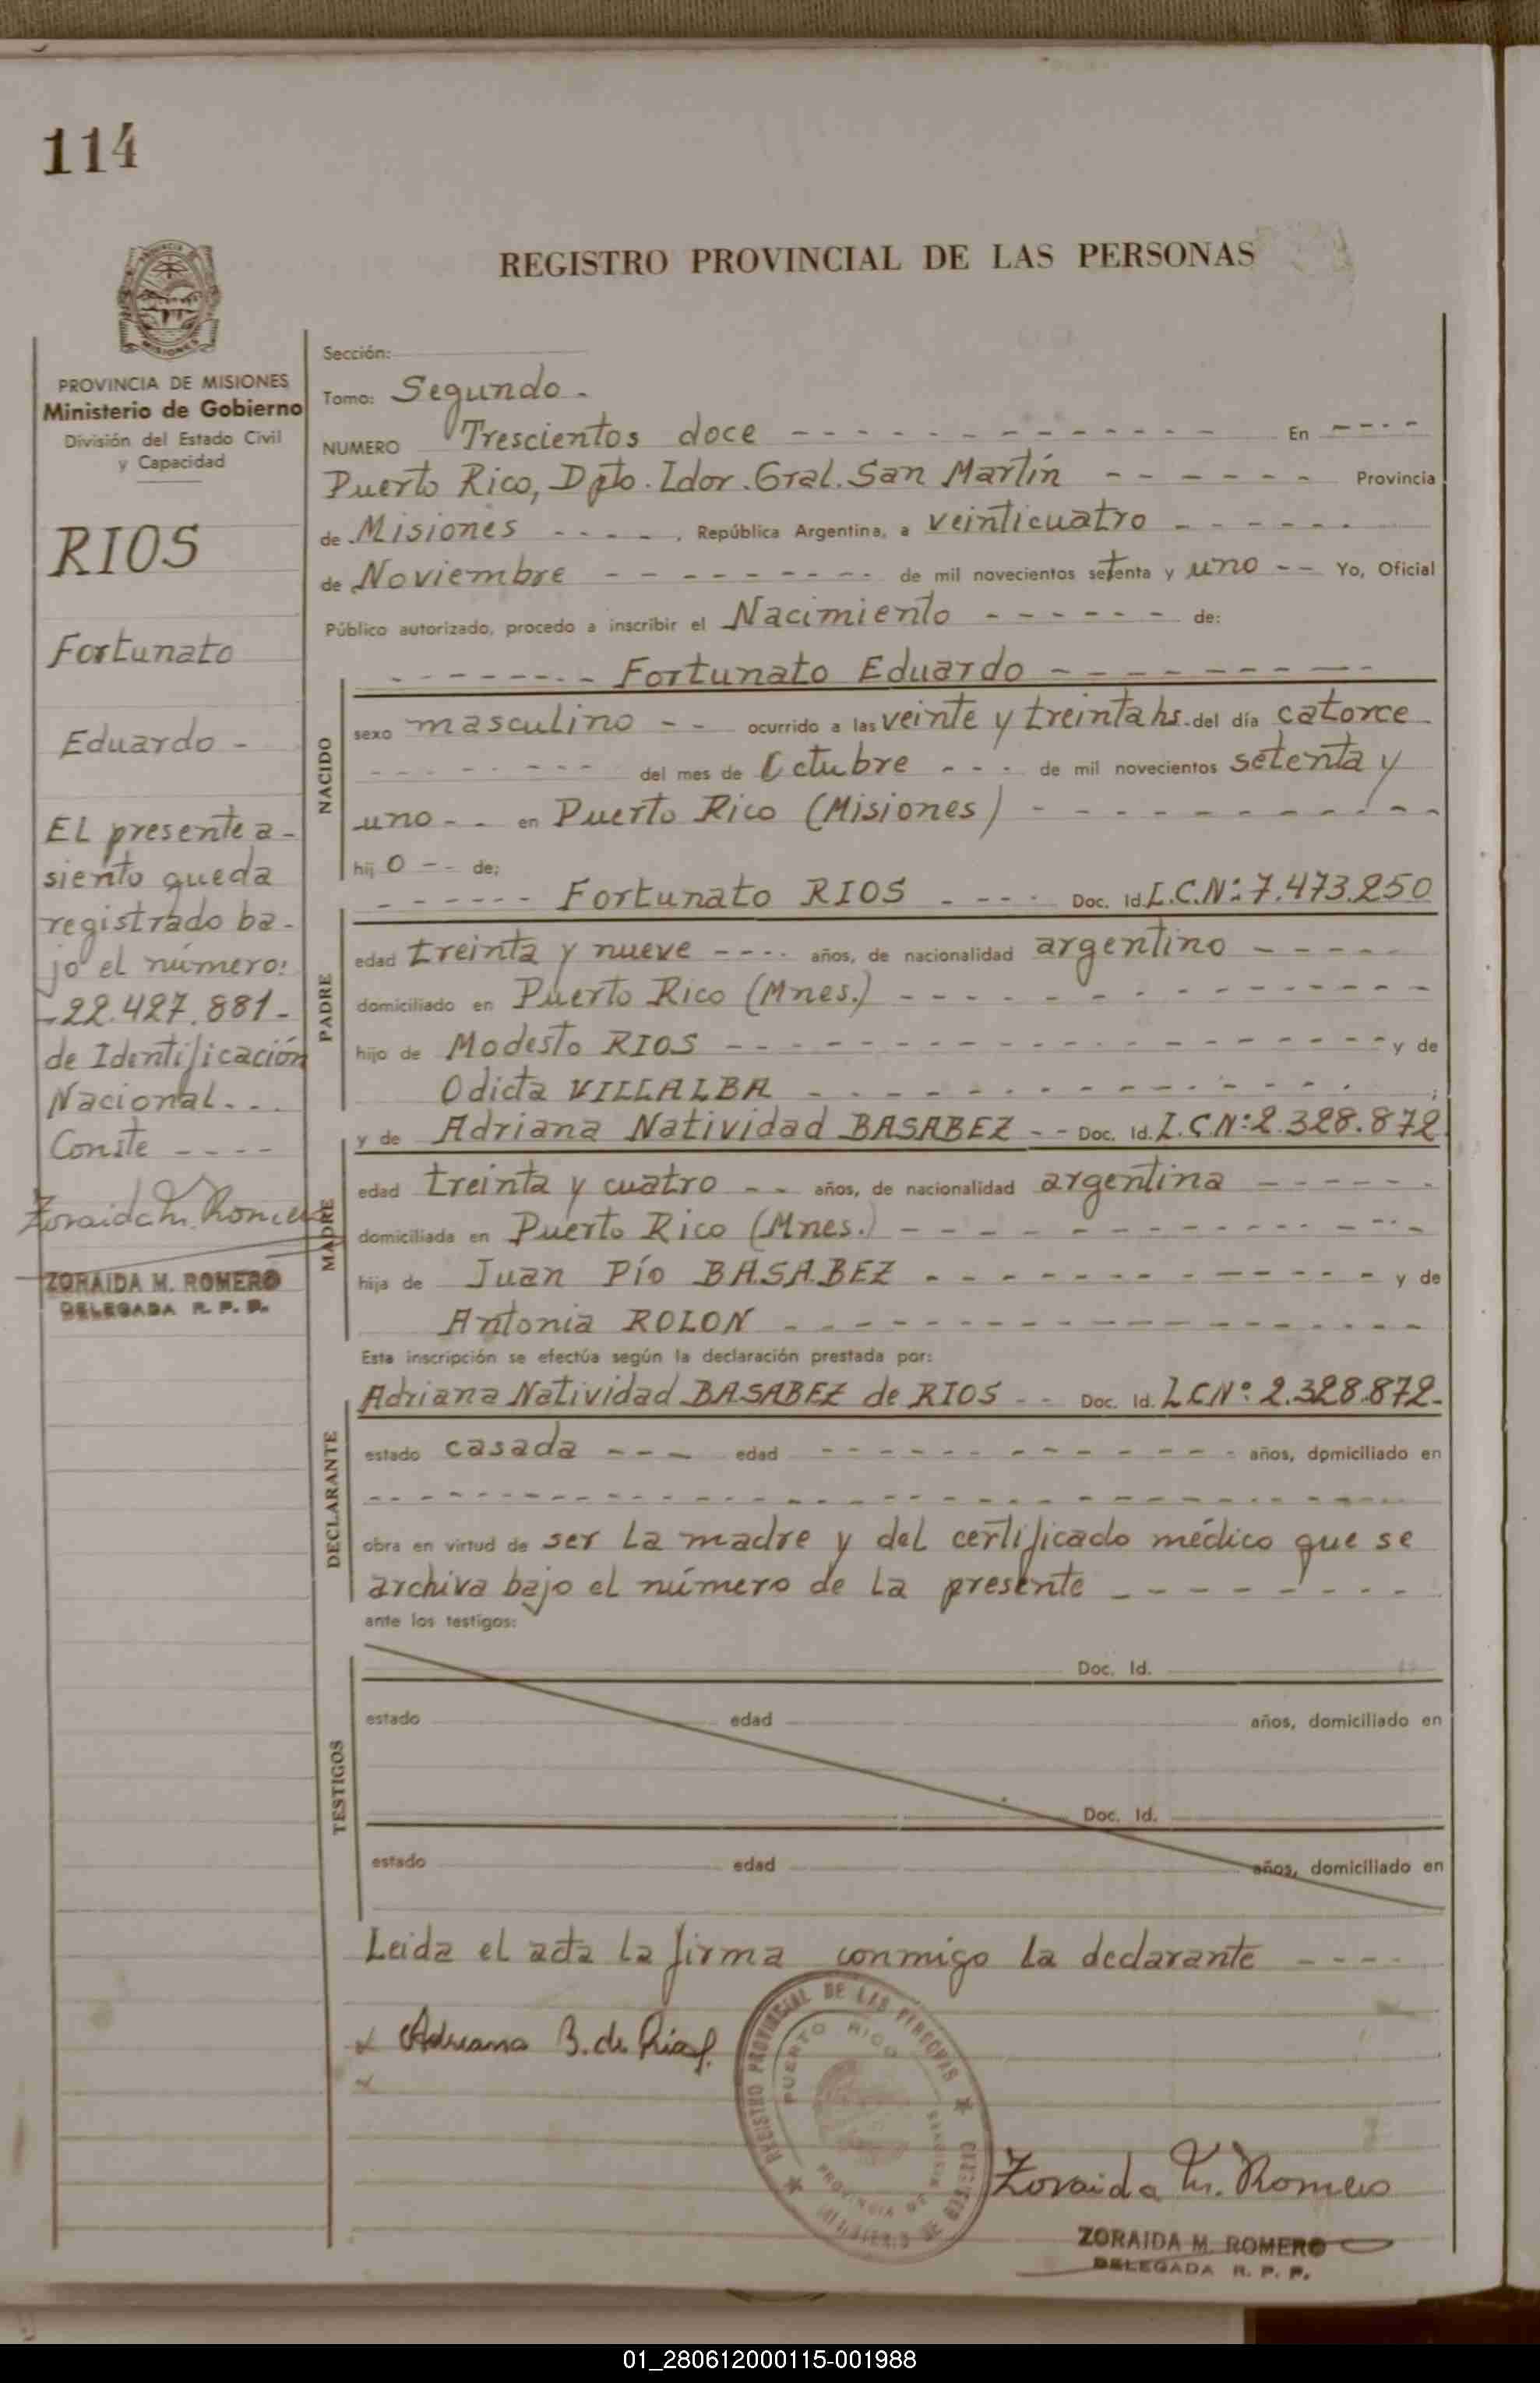 114
REGISTRO PROVINCIAL DE LAS PERSONAS
PROVINCIA DE MISIONES
Ministerio de Gobierno
División del Estado Civil
y Capacidad
RIOS
Fortunato
Eduardo -
EL presente a-
siento queda
registrado ba-
jo el número:
-22.427.881-
de Identificación
Nacional - - -
Conste - - - -
Zoraida M. Romero
ZORAIDA M. ROMERO
DELEGADA R. P. P.
Sección:
Tomo: Segundo -
NUMERO Trescientos doce - - - - - - - - - - - - - En - - - -
Puerto Rico, Dpto. Ldor. Gral. San Martín - - - - - - Provincia
de Misiones - - - - , República Argentina, a veinticuatro - - - - - -
de Noviembre - - - - - - - - - de mil novecientos setenta y uno - - Yo, Oficial
Público autorizado, procedo a inscribir el Nacimiento - - - - - - de:
- - - - - - - - Fortunato Eduardo - - - - - - - - -
NACIDO
sexo masculino - - ocurrido a las veinte y treinta hs. del día catorce -
- - - - - - - - - del mes de Octubre - - - - de mil novecientos setenta y
uno - - en Puerto Rico (Misiones) - - - - - - - - - - -
hij o - - de;
- - - - - - Fortunato RIOS - - - - Doc. Id. L.C.Nº: 7.473.250
PADRE
edad treinta y nueve - - - - años, de nacionalidad argentino - - - - -
domiciliado en Puerto Rico (Mnes.) - - - - - - - - - - - - - - -
hijo de Modesto RIOS - - - - - - - - - - - - - - - - - y de
Odicta VILLALBA - - - - - - - - - - - - - ;
y de Adriana Natividad BASABEZ - - Doc. Id. L.C Nº: 2.328.872
MADRE
edad treinta y cuatro - - años, de nacionalidad argentina - - - - - -
domiciliada en Puerto Rico (Mnes.) - - - - - - - - - - - - - - -
hija de Juan Pío BASABEZ - - - - - - - - - - - - y de
Antonia ROLON - - - - - - - - - - - - - - - - - -
Esta inscripción se efectúa según la declaración prestada por:
Adriana Natividad BASABEZ de RIOS - - Doc. Id. L C Nº: 2.328.872-
DECLARANTE
estado casada - - - edad - - - - - - - - - - - - años, domiciliado en
- - - - - - - - - - - - - - - - - - - - - - - - - - - -
obra en virtud de ser la madre y del certificado médico que se
archiva bajo el número de la presente - - - - - - - -
ante los testigos:
TESTIGOS
Doc. Id.
estado edad años, domiciliado en
Doc. Id.
estado edad años, domiciliado en
Leida el acta la firma conmigo la declarante - - - -
x Adriana B. de Rios
x
REGISTRO PROVINCIAL DE LAS PERSONAS
PUERTO RICO
PROVINCIA DE
Zoraida M. Romero
ZORAIDA M. ROMERO
DELEGADA R. P. P.
01_280612000115-001988